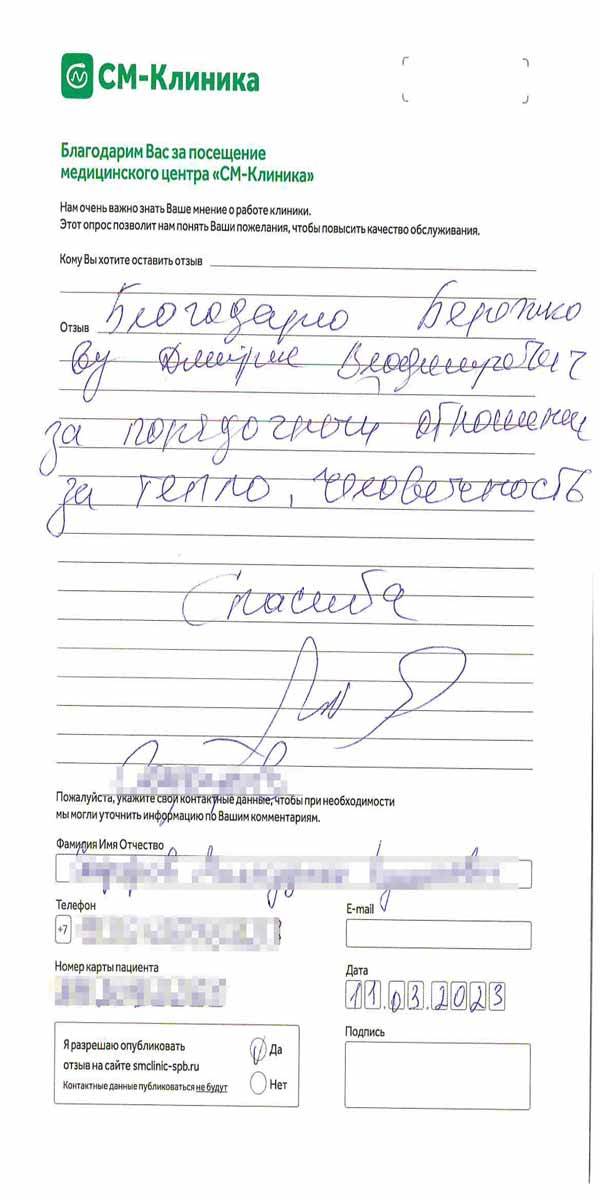 СМ-Клиника
Благодарим Вас за посещение
медицинского центра «СМ-Клиника»
Нам очень важно знать Ваше мнение о работе клиники.
Этот опрос позволит нам понять Ваши пожелания, чтобы повысить качество обслуживания.
Кому Вы хотите оставить отзыв
Отзыв Благодарю Бережко
ву Дмитрие Владимирович
за порядочном отношении
за тепло, человечность
Спасиба
Пожалуйста, укажите свои контактные данные, чтобы при необходимости
мы могли уточнить информацию по Вашим комментариям.
Фамилия Имя Отчество
Телефон E-mail
+7
Номер карты пациента Дата
11.03.2023
Подпись
Я разрешаю опубликовать Да
отзыв на сайте smclinic-spb.ru
Контактные данные публиковаться не будут Нет